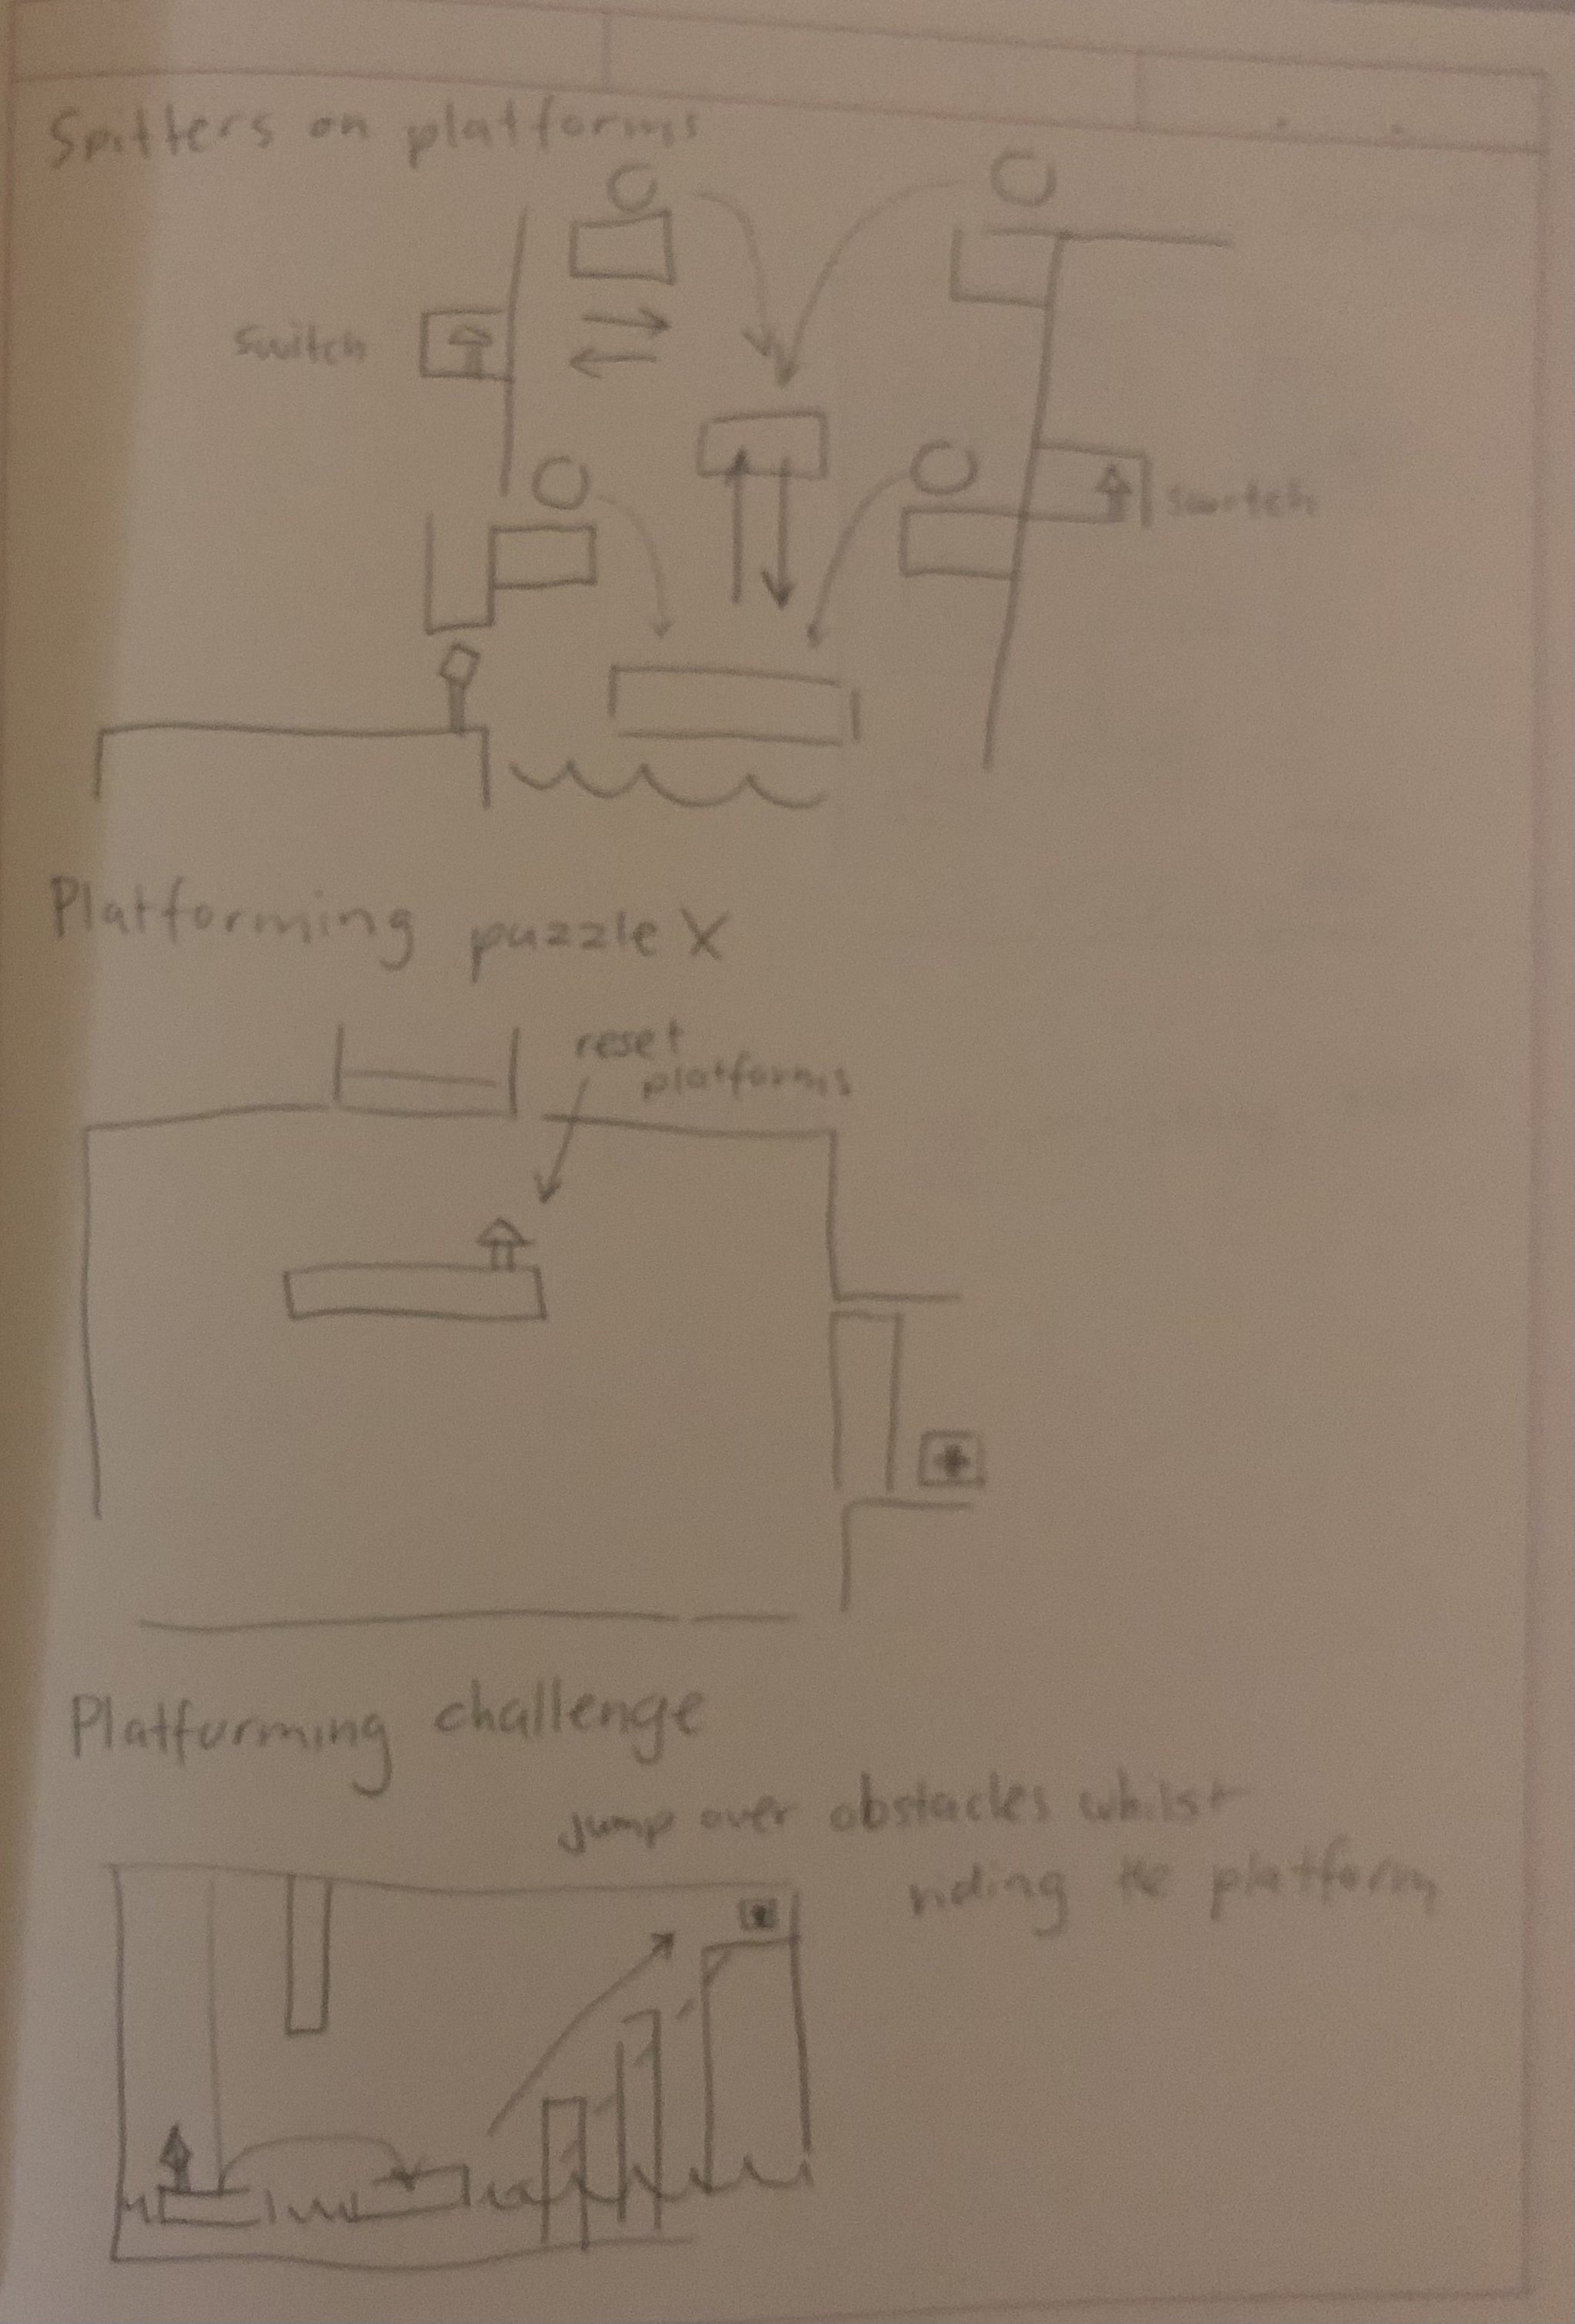 Spitters on platforms
switch
switch
Platforming puzzle X
reset
platforms
Platforming challenge
jump over obstacles whilst
riding the platform